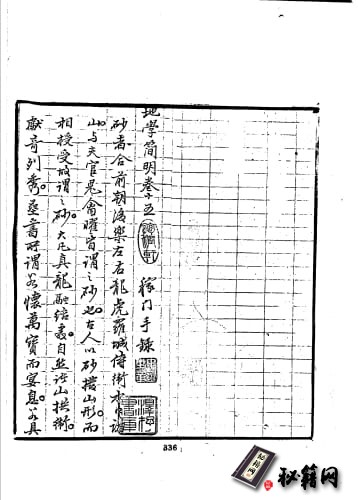 地學简明卷十五 门手錄
砂者合前朝後樂左右龍虎羅城侍衛水口
山与夫官鬼禽曜皆謂之砂也。古人以砂撥山形而
相授受故謂之砂。大凡真龍融結處自然諸山拱衛。
獻奇列秀。葬書所謂若懷萬寶而宴息若具
336
秘籍网